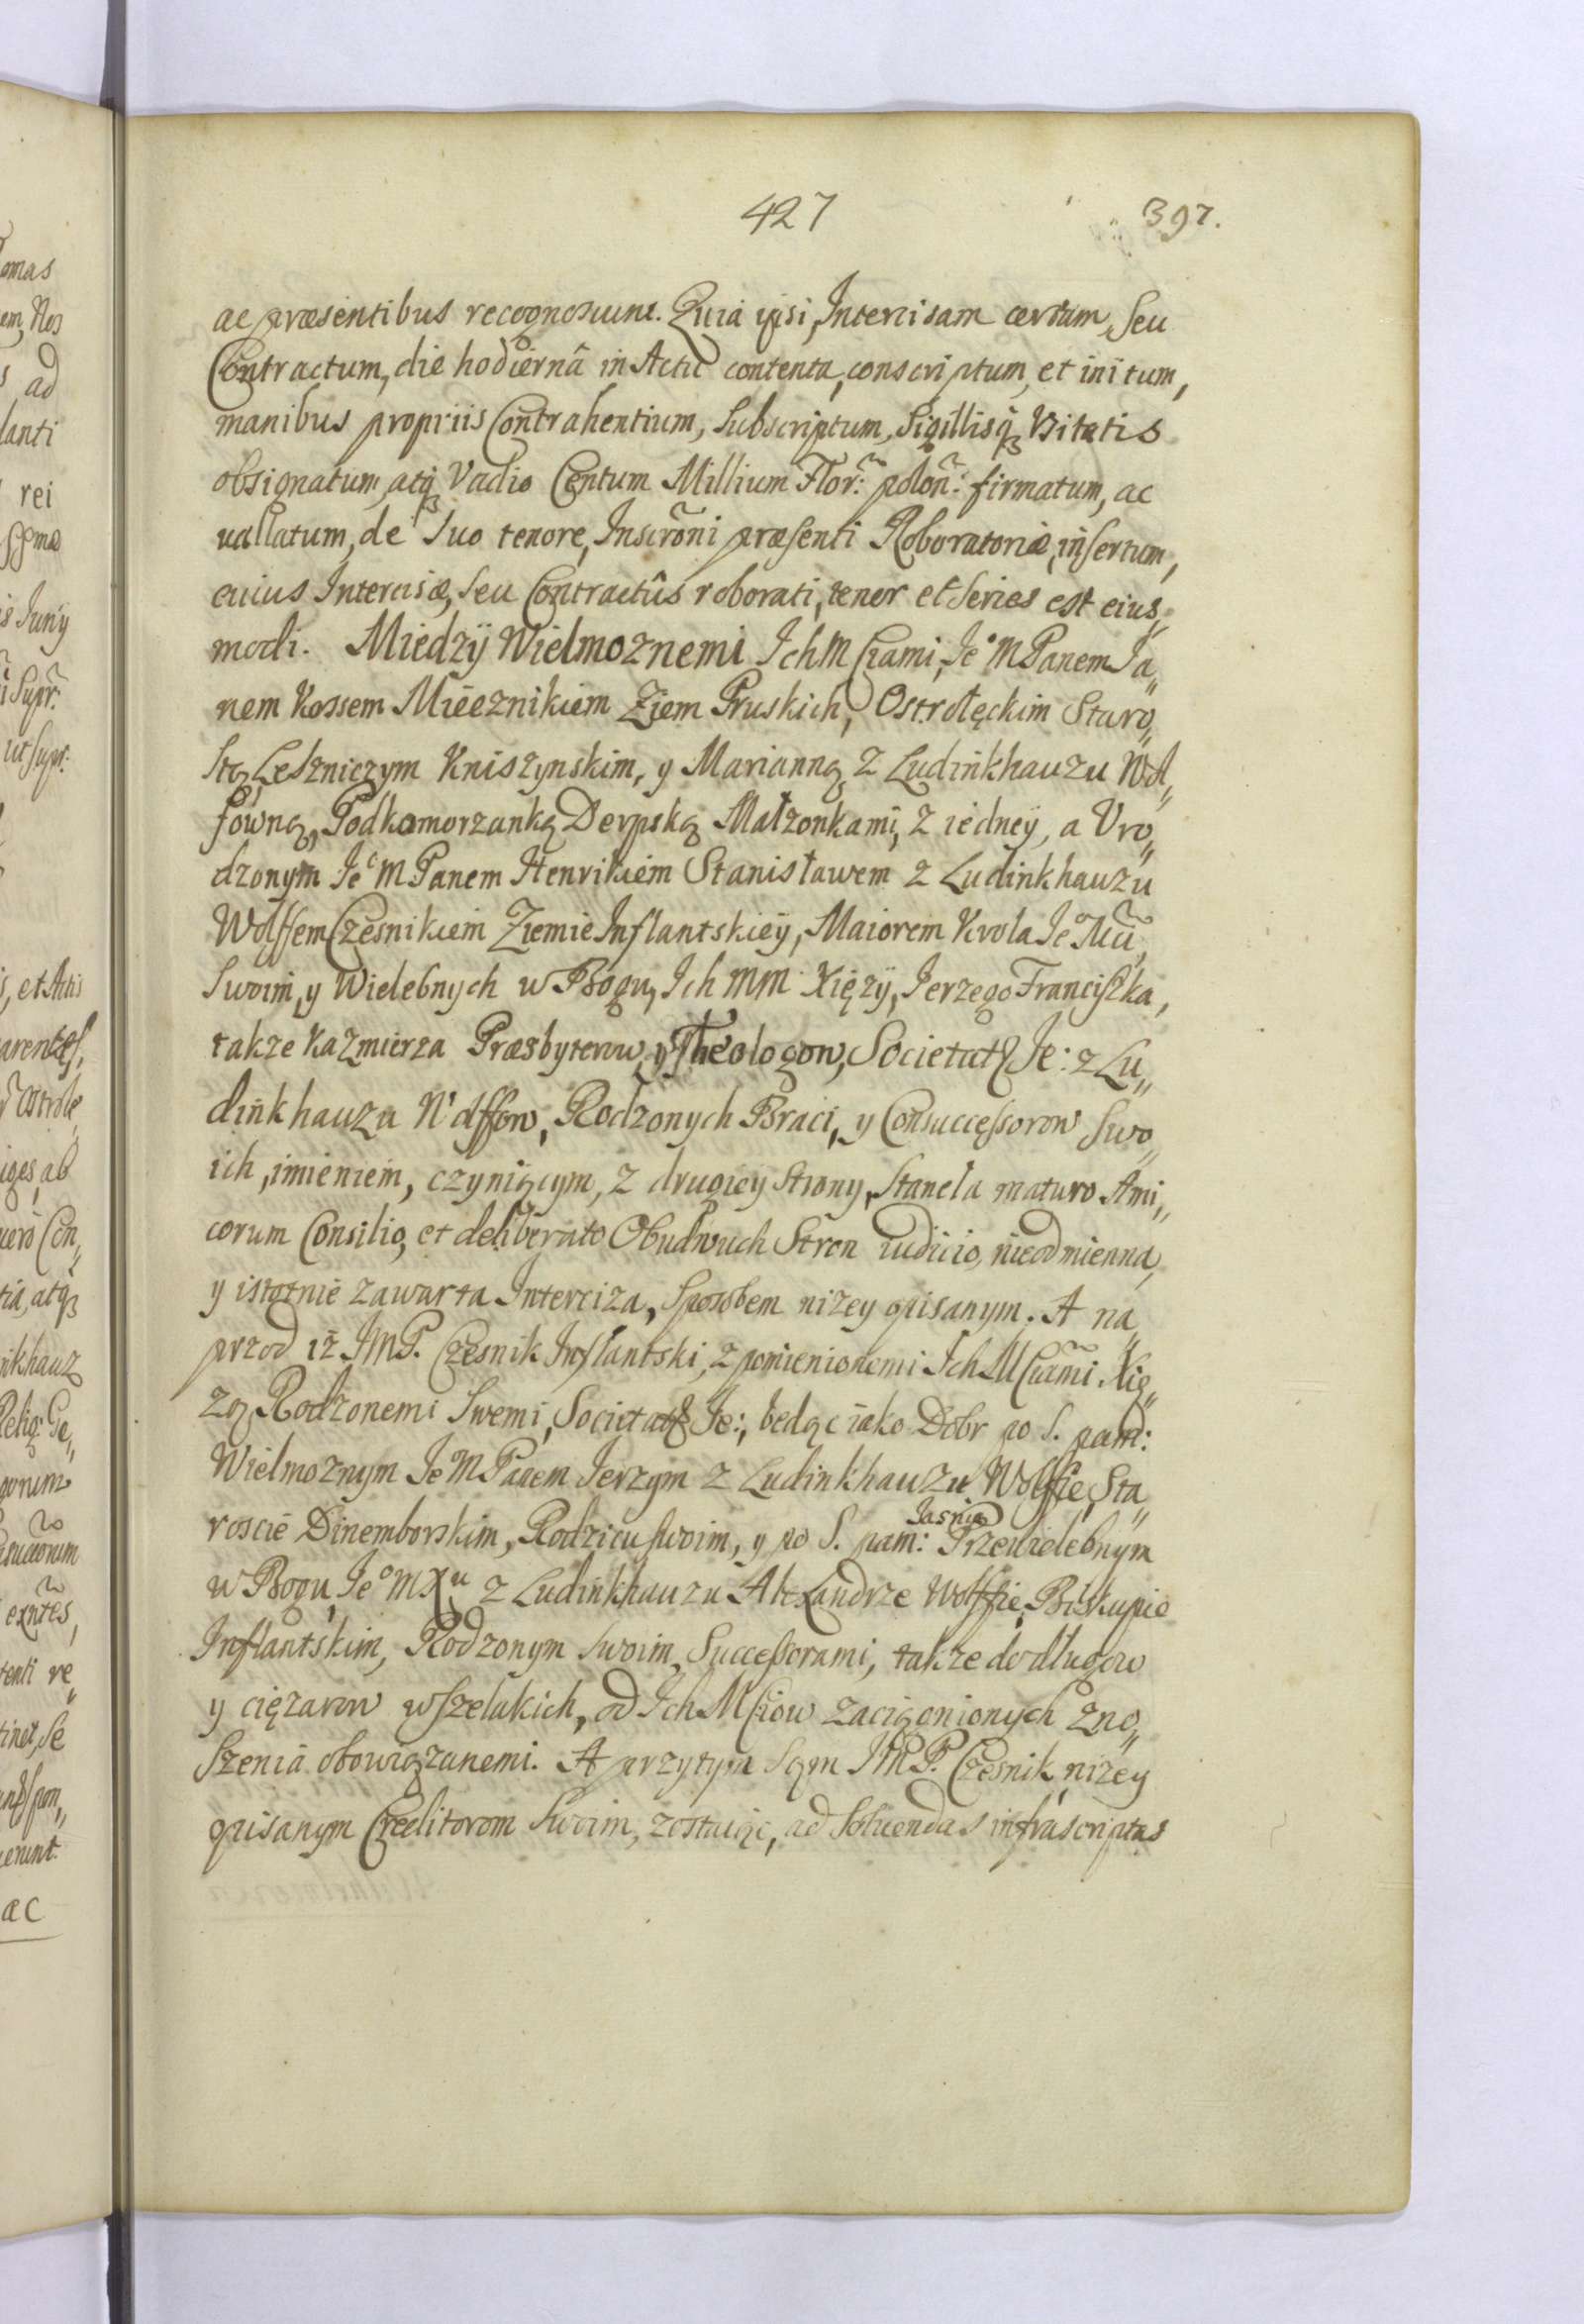 427 397.
ac præsentibus recognoscunt. Quia ipsi, Intercisam certam, seu
Contractum, die hodiernâ in Actu contenta, conscriptum, et initum,
manibus propriis Contrahentium, Subscriptum, Sigillisq3 Vsitatis
obsignatum, atq3 Vadio Centum Millium Flor: polon: firmatum, ac
vallatum, de suo tenore, Inscroni præsenti Roboratoriæ, insertum,
cuius Intercisæ, seu Contractûs roborati, tenor et Series est eius,,
modi. Miedzÿ Wielmoznemi Ich M Ciami, Je° M Panem Ja,,
nem Kossem Miecznikiem Ziem Pruskich, Ostrołęckim Staro,,
stą, Leszniczym Kniszynskim, y Marianną z Ludinkhauzu Wol,,
fowną, Podkomorzanką Derpską Małzonkami, z iedneÿ, a Vro,,
dzonym Je° M Panem Henrikiem Stanisławem z Ludinkhauzu
Wolffem Czesnikiem Ziemie Inflantskieÿ, Maiorem Krola Je° Mci,
Swoim, y Wielebnych w Bogu, Ich MM Xięzÿ, Jerzego Franciszka,
takze Kazmierza Præsbyterow, y Theologow, Societatis Je: z Lu,,
dinkhauzu Wolffow, Rodzonych Braci, y Consuccessorow Swo,,
ich, imieniem, czyniącym, z drugiey Strony, Stanela maturo Ami,,
corum Consilio, et deliberato Obudwuch Stron iudicio, nieodmienna,
y istotnie zawarta Interciza, Sposobem nizey opisanym. A na,,
przod iż JMP. Czesnik Inflantski, z pomienionemi Ich M Ciami Xię,,
zą Rodzonemi Swemi, Societatis Je:, bedąc iako Dobr po S. pam:
Wielmoznym Je M Panem Jerzym z Ludinkhauzu Wolffie, Sta,,
roscie Dinemborskim, Rodzicu swoim, y po S. pam: Jasnie Przewielebnym
w Bogu, Je° M Xu z Ludinkhauzu Alexandrze Wolffie, Biskupie
Inflantskim, Rodzonym Swoim, Successorami, takze do dlugow
y ciężarow wszelakich, od Ich M Ciow zaciągnionych zno,,
szenia obowiązanemi. A przytym Sam JMP. Czesnik, nizey
opisanym Creditorom Swoim, zostaiąc, ad Soluendas infrascriptas